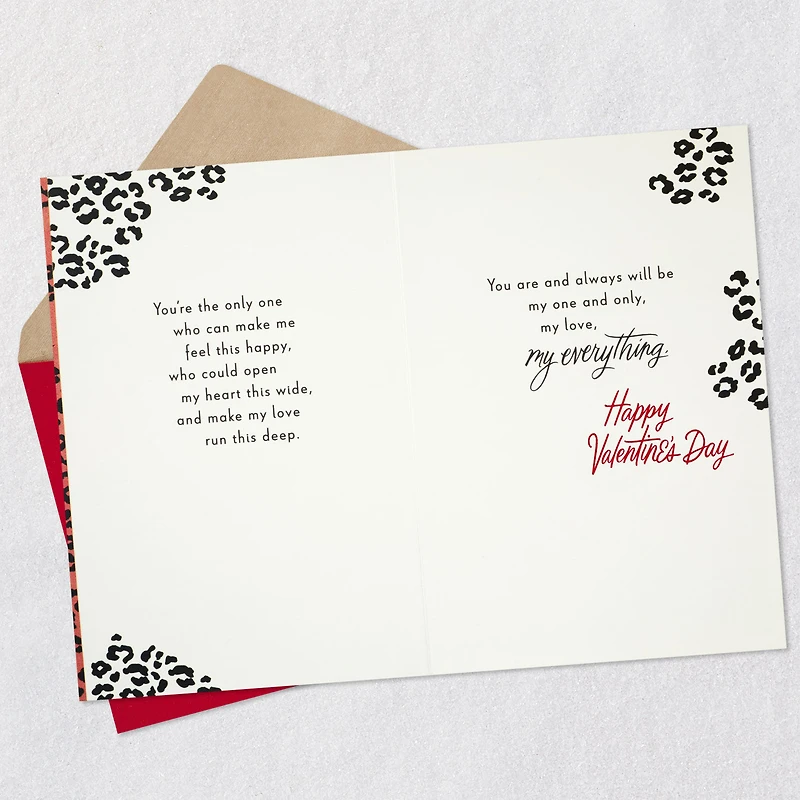 You're the only one
who can make me
feel this happy,
who could open
my heart this wide,
and make my love
run this deep.
You are and always will be
my one and only,
my love,
my everything.
Happy
Valentine's Day